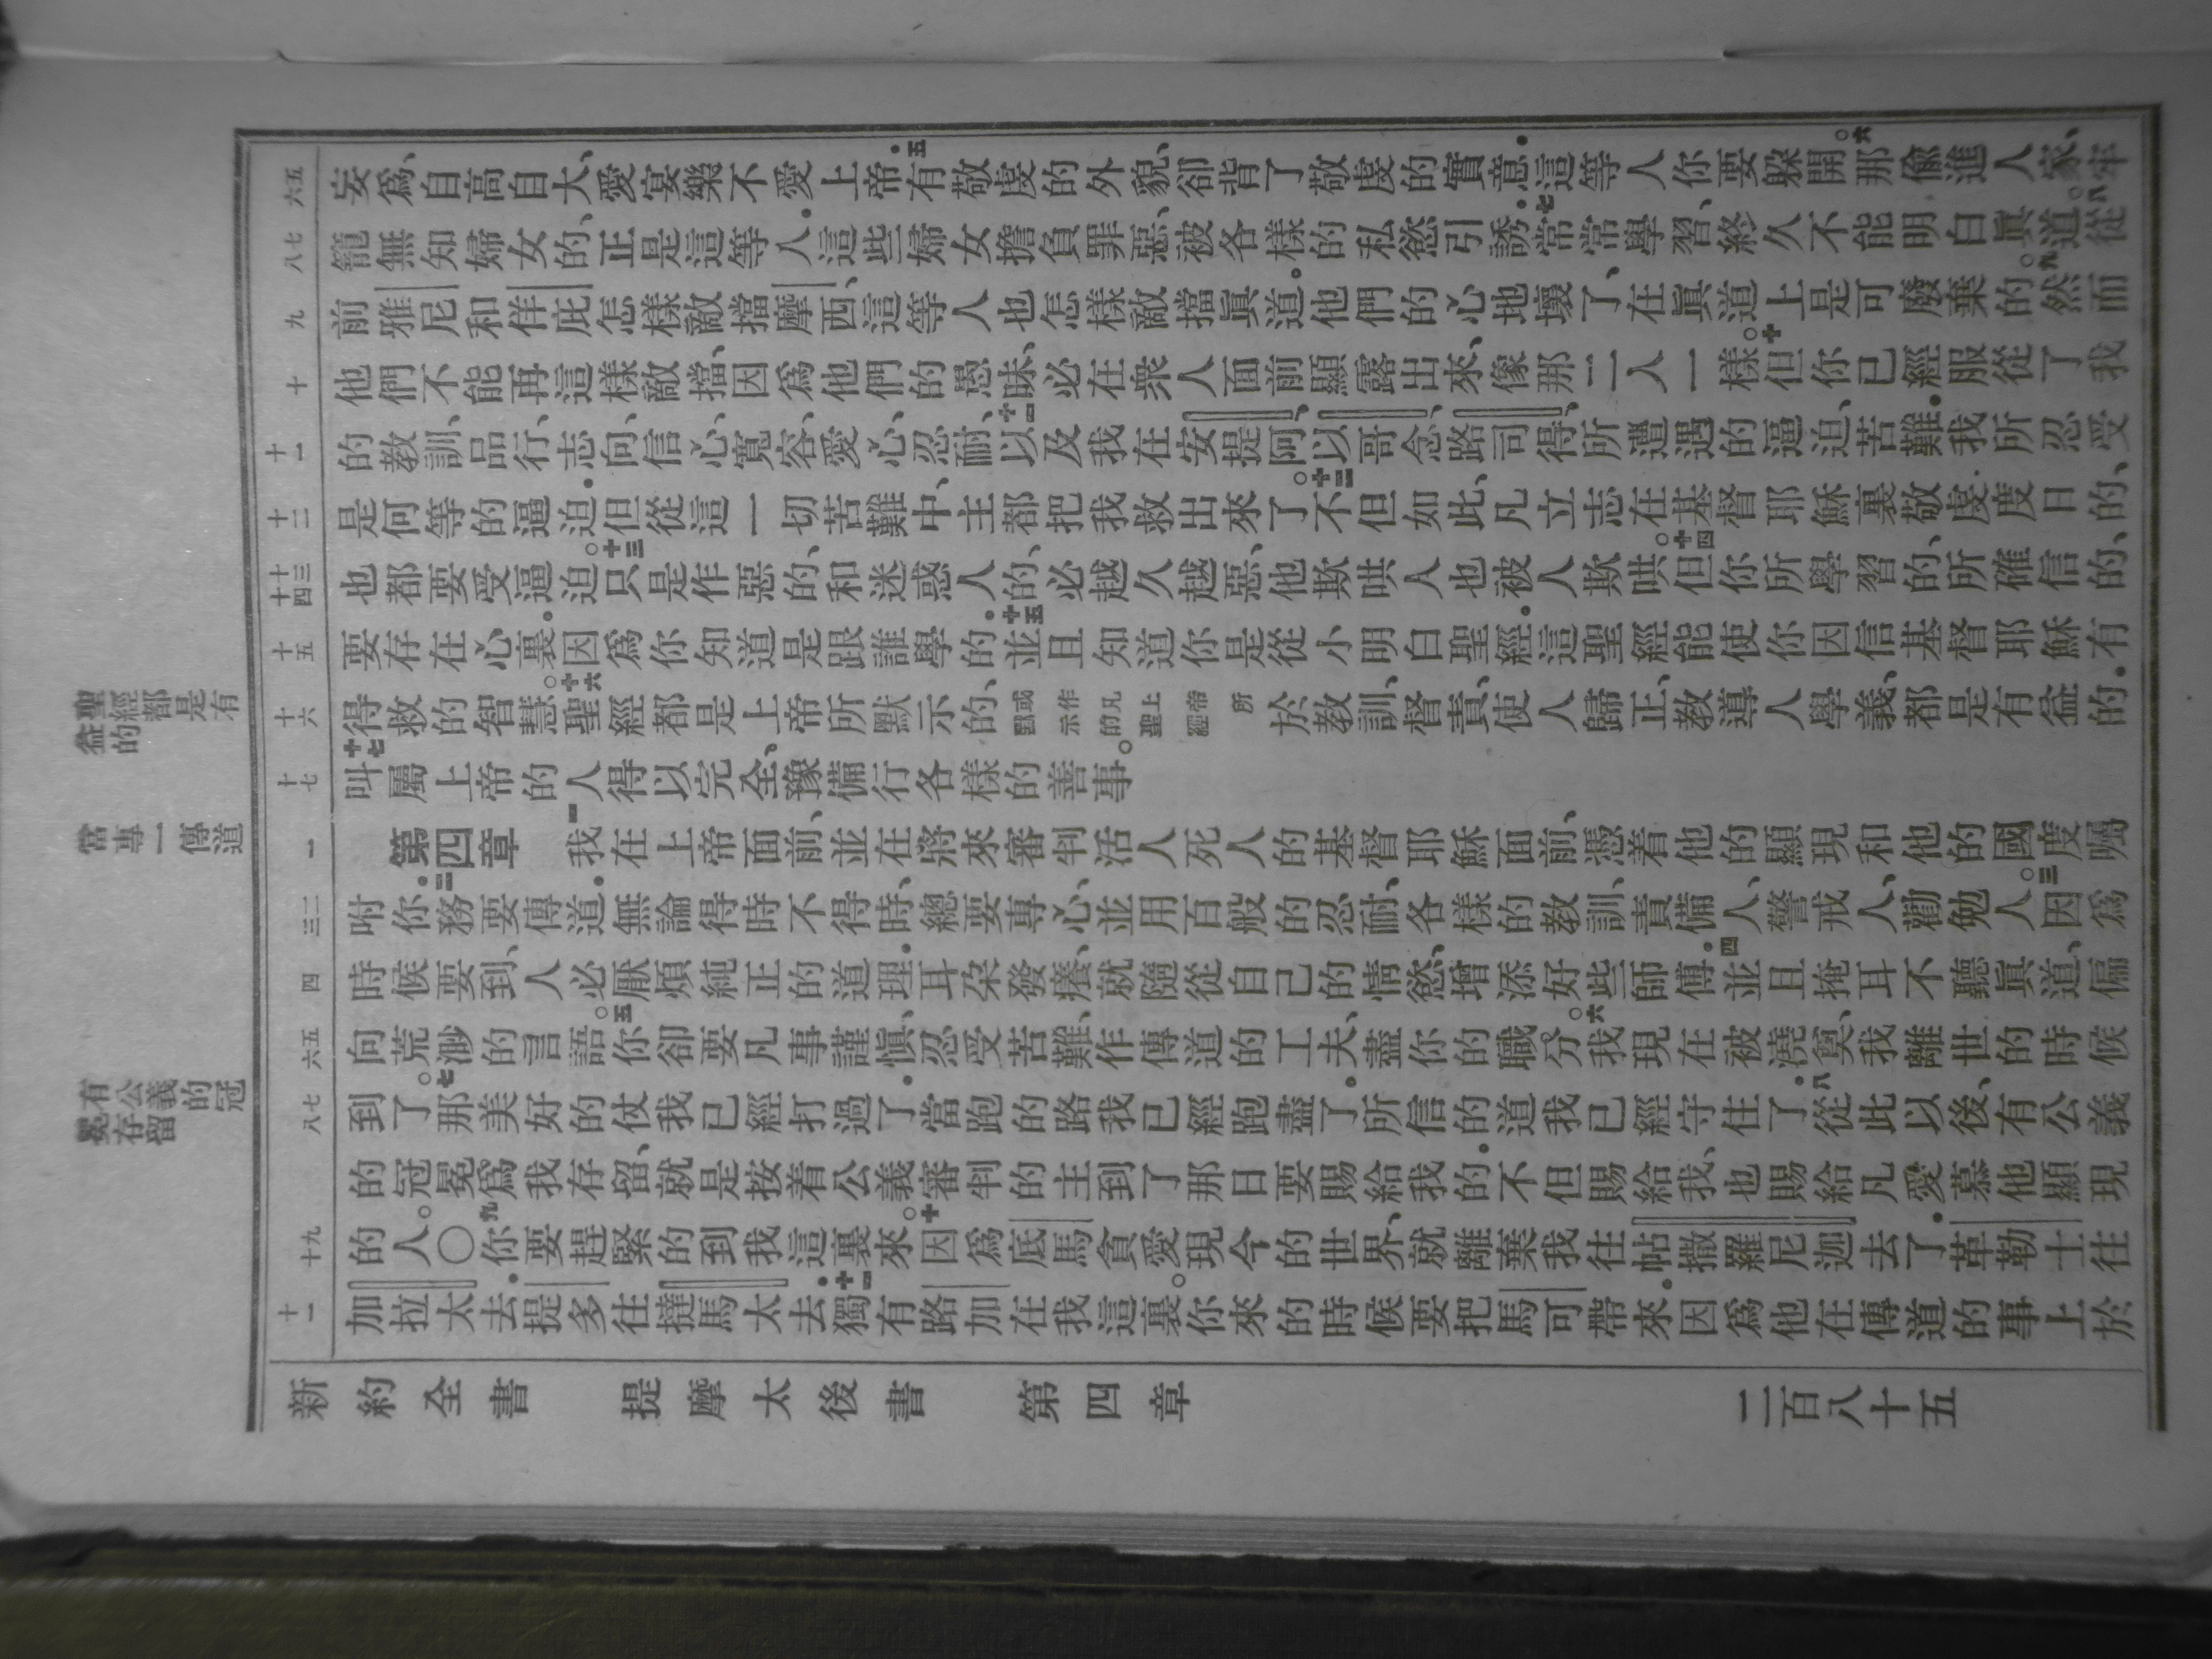 妄爲、自高自大、愛宴樂不愛上帝．五有敬虔的外貌、卻背了敬虔的實意．這等人你要躲開。六那偷進人家、牢
籠無知婦女的、正是這等人．這些婦女擔負罪惡、被各樣的私慾引誘．七常常學習、終久不能明白眞道。八從
前雅尼和佯庇怎樣敵擋摩西、這等人也怎樣敵擋眞道。他們的心地壞了、在眞道上是可廢棄的。九然而
他們不能再這樣敵擋、因爲他們的愚昧、必在衆人面前顯露出來、像那二人一樣。十但你已經服從了我
的教訓、品行、志向、信心、寬容、愛心、忍耐、十一以及我在安提阿、以哥念、路司得、所遭遇的逼迫、苦難．我所忍受
是何等的逼迫．但從這一切苦難中、主都把我救出來了。十二不但如此、凡立志在基督耶穌裏敬虔度日的、
也都要受逼迫。十三只是作惡的、和迷惑人的、必越久越惡、他欺哄人也被人欺哄。十四但你所學習的、所確信的、
要存在心裏．因爲你知道是跟誰學的．十五並且知道你是從小明白聖經．這聖經能使你因信基督耶穌有
得救的智慧。十六聖經都是上帝所默示的、或作凡上帝所默示的聖經於教訓、督責、使人歸正、教導人學義、都是有益的．
十七叫屬上帝的人得以完全、豫備行各樣的善事。
第四章 一我在上帝面前、並在將來審判活人死人的基督耶穌面前、憑着他的顯現和他的國度囑
咐你．二務要傳道．無論得時不得時、總要專心、並用百般的忍耐、各樣的教訓、責備人、警戒人、勸勉人。三因爲
時候要到、人必厭煩純正的道理．耳朵發癢、就隨從自己的情慾、增添好些師傅．四並且掩耳不聽眞道、偏
向荒渺的言語。五你卻要凡事謹愼、忍受苦難、作傳道的工夫、盡你的職分。六我現在被澆奠、我離世的時候
到了。七那美好的仗我已經打過了．當跑的路我已經跑盡了．所信的道我已經守住了．八從此以後、有公義
的冠冕爲我存留、就是按着公義審判的主到了那日要賜給我的．不但賜給我、也賜給凡愛慕他顯現
的人。〇九你要趕緊的到我這裏來。十因爲底馬貪愛現今的世界、就離棄我往帖撒羅尼迦去了．革勒士往
加拉太去．提多往撻馬太去．十一獨有路加在我這裏。你來的時候要把馬可帶來．因爲他在傳道的事上於
新約全書 提摩太後書 第四章 二百八十五
五六 七八 九 十 十一 十二 十三十四 十五 十六 十七 一 二三 四 五六 七八 九十 十一
聖經都是有益的
當專一傳道
有公義的冠冕存留